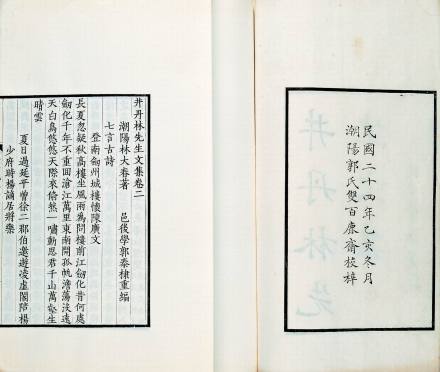 民國二十四年乙亥冬月
潮陽郭氏雙百鹿齋校梓
井丹林先生文集卷二
潮陽林大春著 邑後學郭泰棣重編
七言古詩
登南劍州城樓懷陳廣文
長夏忽疑秋高樓坐風雨爲問樓前江劍化昔何處
劍化千年不重回滄江萬里東南開孤帆澹蕩淡遠
天白鳥悠悠天際來倚無一嘯動思君千山萬壑生
晴雲
夏日過延平曾徐二郡伯邀遊凌虛閣陪楊
少府時楊誦居辨樂
井丹林先